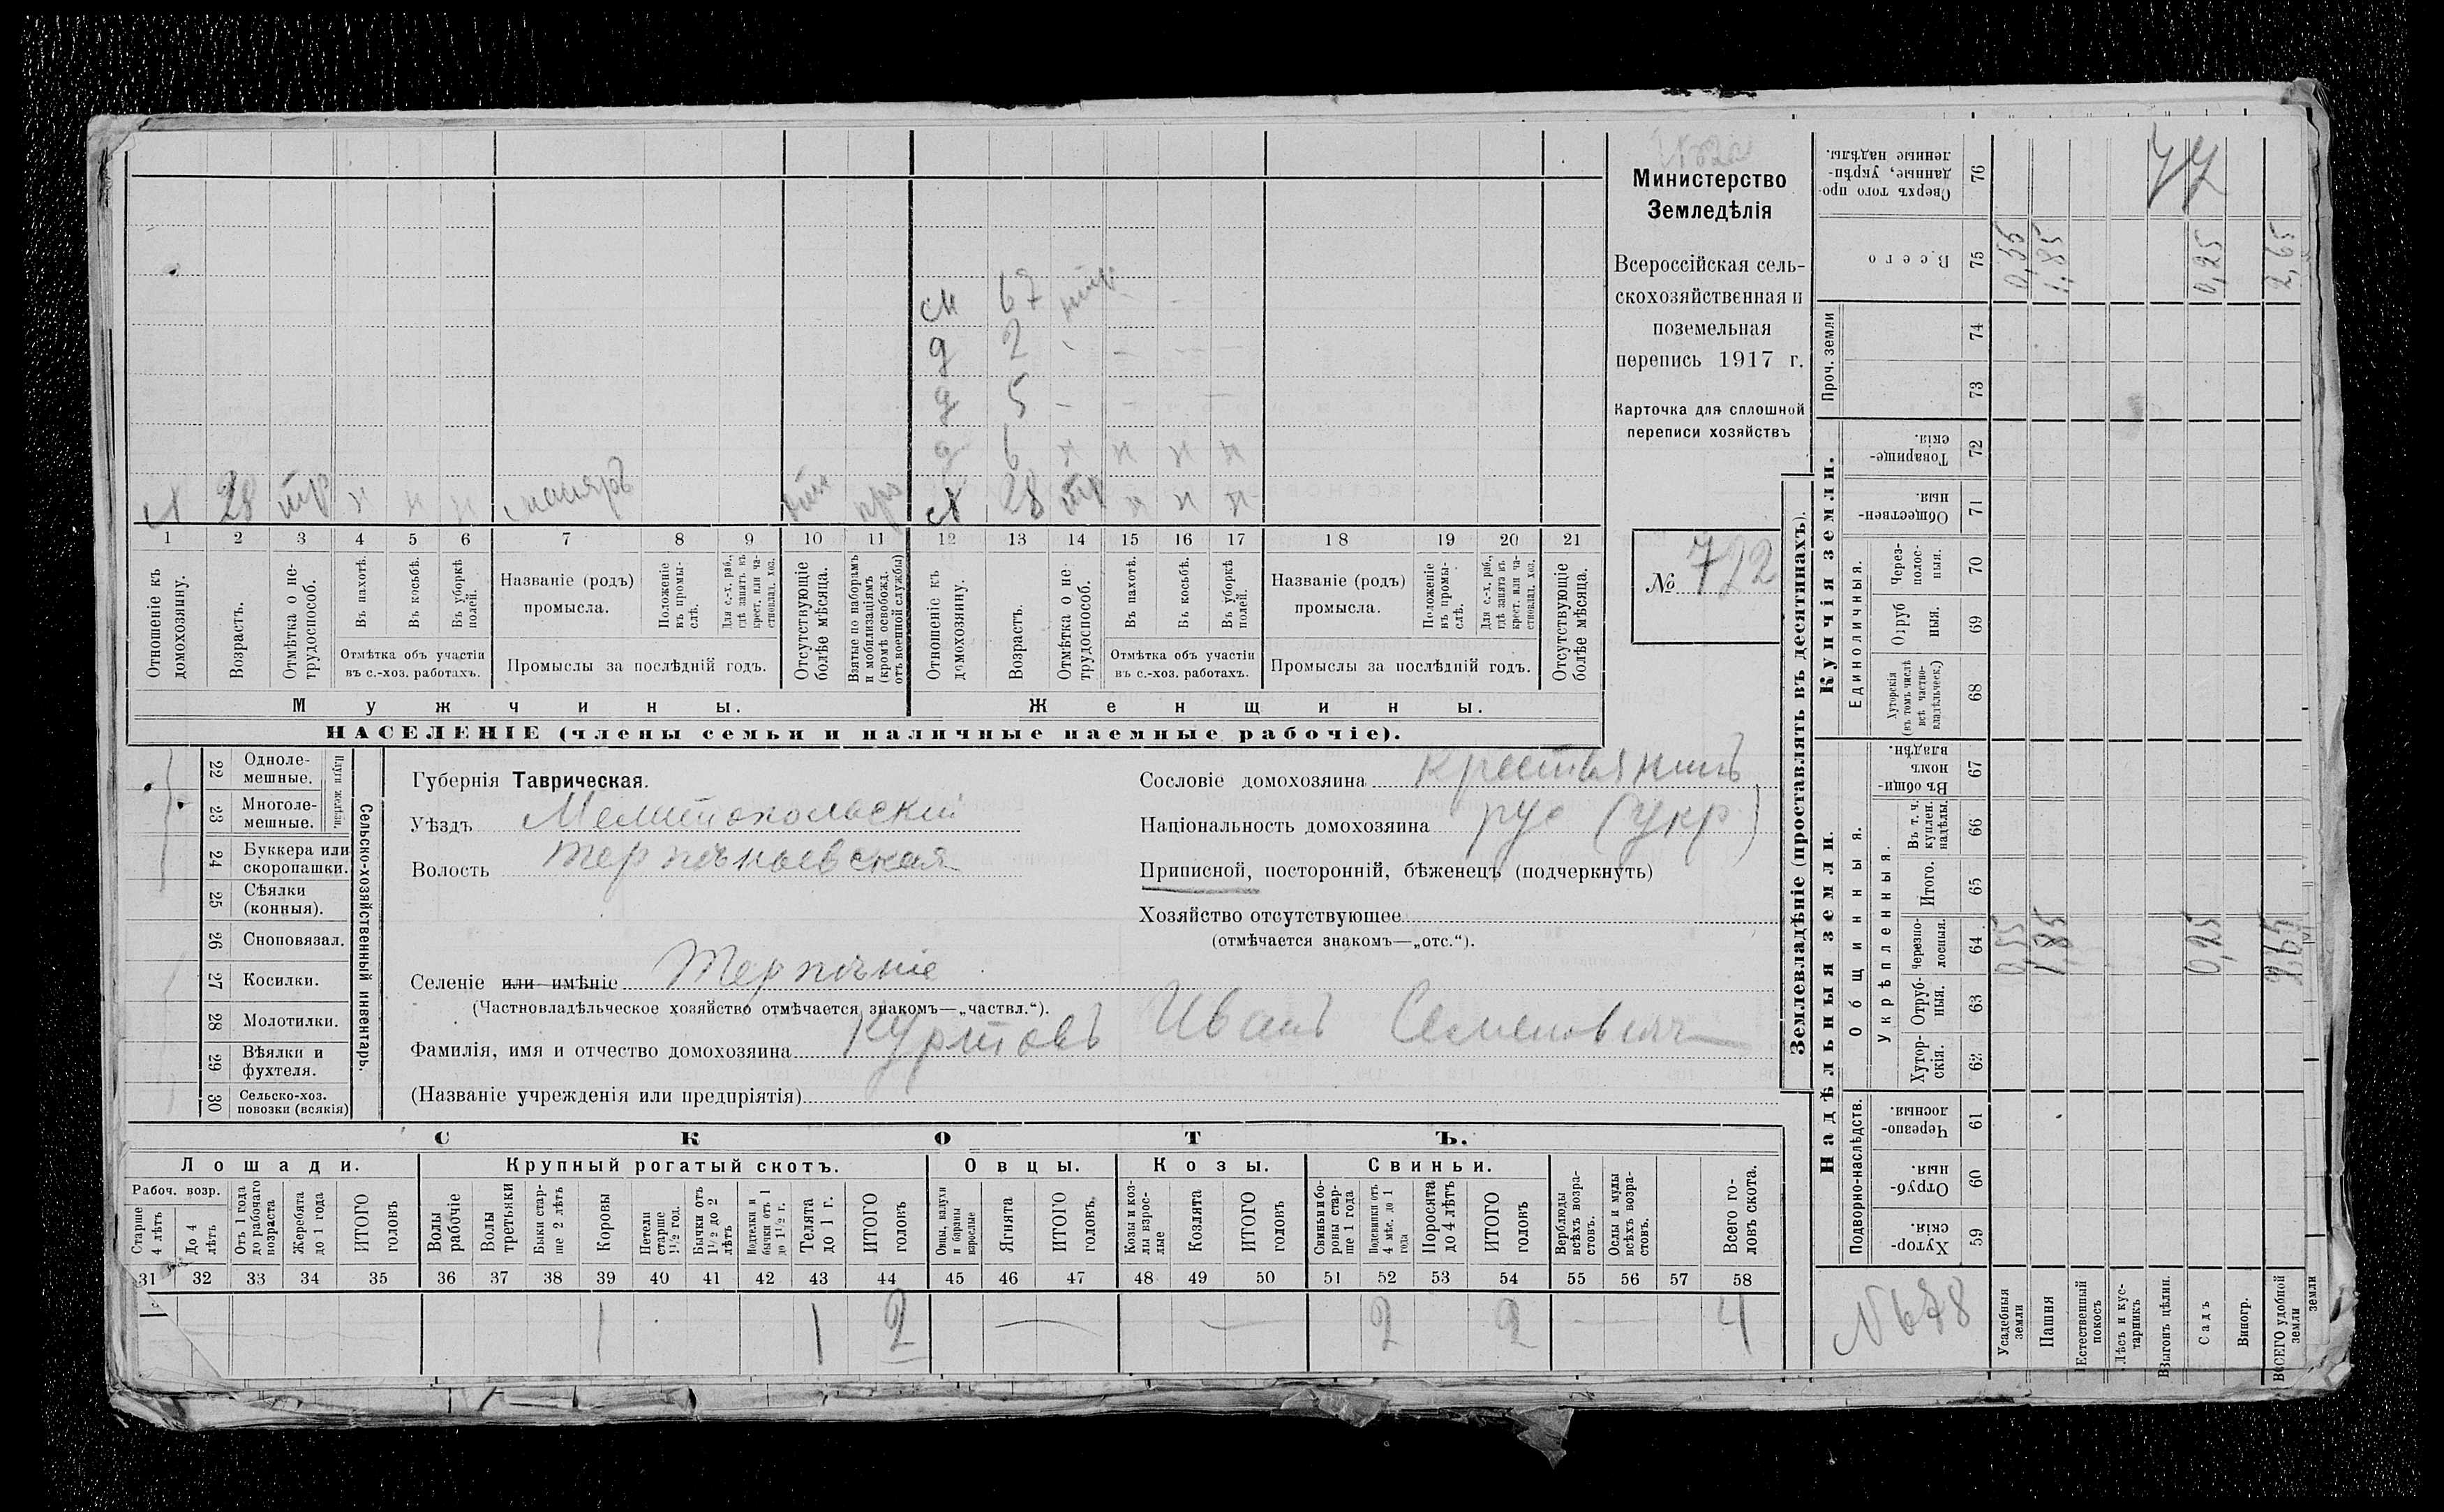 Министерство
Земледѣлія
Всероссійская сель-
скохозяйственная и
поземельная
перепись 1917 г.
Карточка для сплошной
переписи хозяйствъ
№ 722
см 67 нтр
д 2
д 5
д 6 н н н н
м 28 тр н н н маляръ
ж 28 тр н н н
1 2 3 4 5 6 7 8 9 10 11 12 13 14 15 16 17 18 19 20 21
Отношеніе къ домохозяину.
Возрастъ.
Отмѣтка о нетрудоспособ.
Въ пахотѣ.
Въ косьбѣ.
Въ уборкѣ полей.
Отмѣтка объ участіи
въ с.-хоз. работахъ.
Названіе (родъ)
промысла.
Положеніе въ промыслѣ.
Для с.-х. раб., гдѣ занятъ въ крест. или частновлад. хоз.
Промыслы за послѣдній годъ.
Отсутствующіе болѣе мѣсяца.
Взятые по наборамъ и мобилизаціямъ (кромѣ освобожд. отъ военной службы)
Отношеніе къ домохозяину.
Возрастъ.
Отмѣтка о нетрудоспособ.
Въ пахотѣ.
Въ косьбѣ.
Въ уборкѣ полей.
Отмѣтка объ участіи
въ с.-хоз. работахъ.
Названіе (родъ)
промысла.
Положеніе въ промыслѣ.
Для с.-х. раб., гдѣ занята въ крест. или частновлад. хоз.
Промыслы за послѣдній годъ.
Отсутствующіе болѣе мѣсяца.
Мужчины.
Женщины.
НАСЕЛЕНІЕ (члены семьи и наличные наемные рабочіе).
Сельско-хозяйственный инвентарь.
Плуги желѣзн.
22 Однолемешные.
23 Многолемешные.
24 Буккера или скоропашки.
25 Сѣялки (конныя).
26 Сноповязал.
27 Косилки.
28 Молотилки.
29 Вѣялки и фухтеля.
30 Сельско-хоз. повозки (всякія)
Губернія Таврическая.
Уѣздъ Мелитопольскій
Волость Терпѣньевская
Селеніе или имѣніе Терпѣніе
(Частновладѣльческое хозяйство отмѣчается знакомъ—„частвл.“).
Фамилія, имя и отчество домохозяина Куртовъ Иванъ Семеновичъ
(Названіе учрежденія или предпріятія)
Сословіе домохозяина крестьянинъ
Національность домохозяина рус (укр)
Приписной, посторонній, бѣженецъ (подчеркнуть)
Хозяйство отсутствующее
(отмѣчается знакомъ—„отс.“).
СКОТЪ.
Лошади. Крупный рогатый скотъ. Овцы. Козы. Свиньи.
Рабоч. возр.
Старше 4 лѣтъ
До 4 лѣтъ
Отъ 1 года до рабочаго возраста
Жеребята до 1 года
ИТОГО головъ
Волы рабочіе
Волы третьяки
Быки старше 2 лѣтъ
Коровы
Нетели старше 1½ год.
Бычки отъ 1½ до 2 лѣтъ
Подтелки и бычки отъ 1 до 1½ г.
Телята до 1 г.
ИТОГО головъ
Овцы, валухи и бараны взрослые
Ягнята
ИТОГО головъ.
Козы и козлы взрослые
Козлята
ИТОГО головъ
Свиньи и боровы старше 1 года
Подсвинки отъ 4 мѣс. до 1 года
Поросята до 4 лѣтъ
ИТОГО головъ
Верблюды всѣхъ возрастовъ.
Ослы и мулы всѣхъ возрастовъ.
Всего головъ скота.
31 32 33 34 35 36 37 38 39 40 41 42 43 44 45 46 47 48 49 50 51 52 53 54 55 56 57 58
1 1 2 — — 2 2 — 4
Землевладѣніе (проставлять въ десятинахъ).
Купчія земли.
Надѣльныя земли.
77
Сверхъ того проданные, укрѣпленные надѣлы. 76
Всего 75 0,55 1,85 0,25 2,65
Проч. земли
74
73
Товарищескія. 72
Общественныя. 71
Единоличныя.
Черезполосныя. 70
Отрубныя. 69
Хуторскія (въ томъ числѣ всѣ частновладѣльческ.) 68
Общинныя.
Въ общинномъ владѣн. 67
Укрѣпленныя.
Въ т. ч. куплен. надѣлы. 66
Итого. 65
Черезполосныя. 64 0,55 1,85 0,25 2,65
Отрубныя. 63
Хуторскія. 62
Подворно-наслѣдств.
Черезполосныя. 61
Отрубныя. 60
Хуторскія. 59
N 678
Усадебныя земли
Пашня
Естественный покосъ
Лѣсъ и кустарникъ
Выгонъ цѣлин.
Садъ
Виногр.
ВСЕГО удобной земли
земли